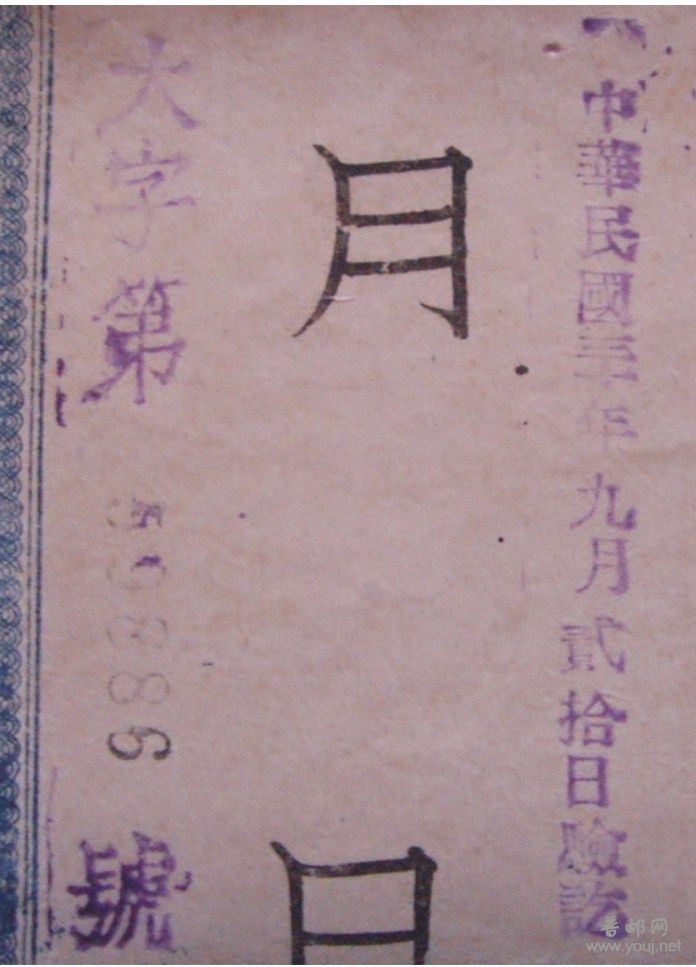 中華民國三十年九月貳拾日驗訖
月
日
大字第59886號
普邮网
www.youj.net